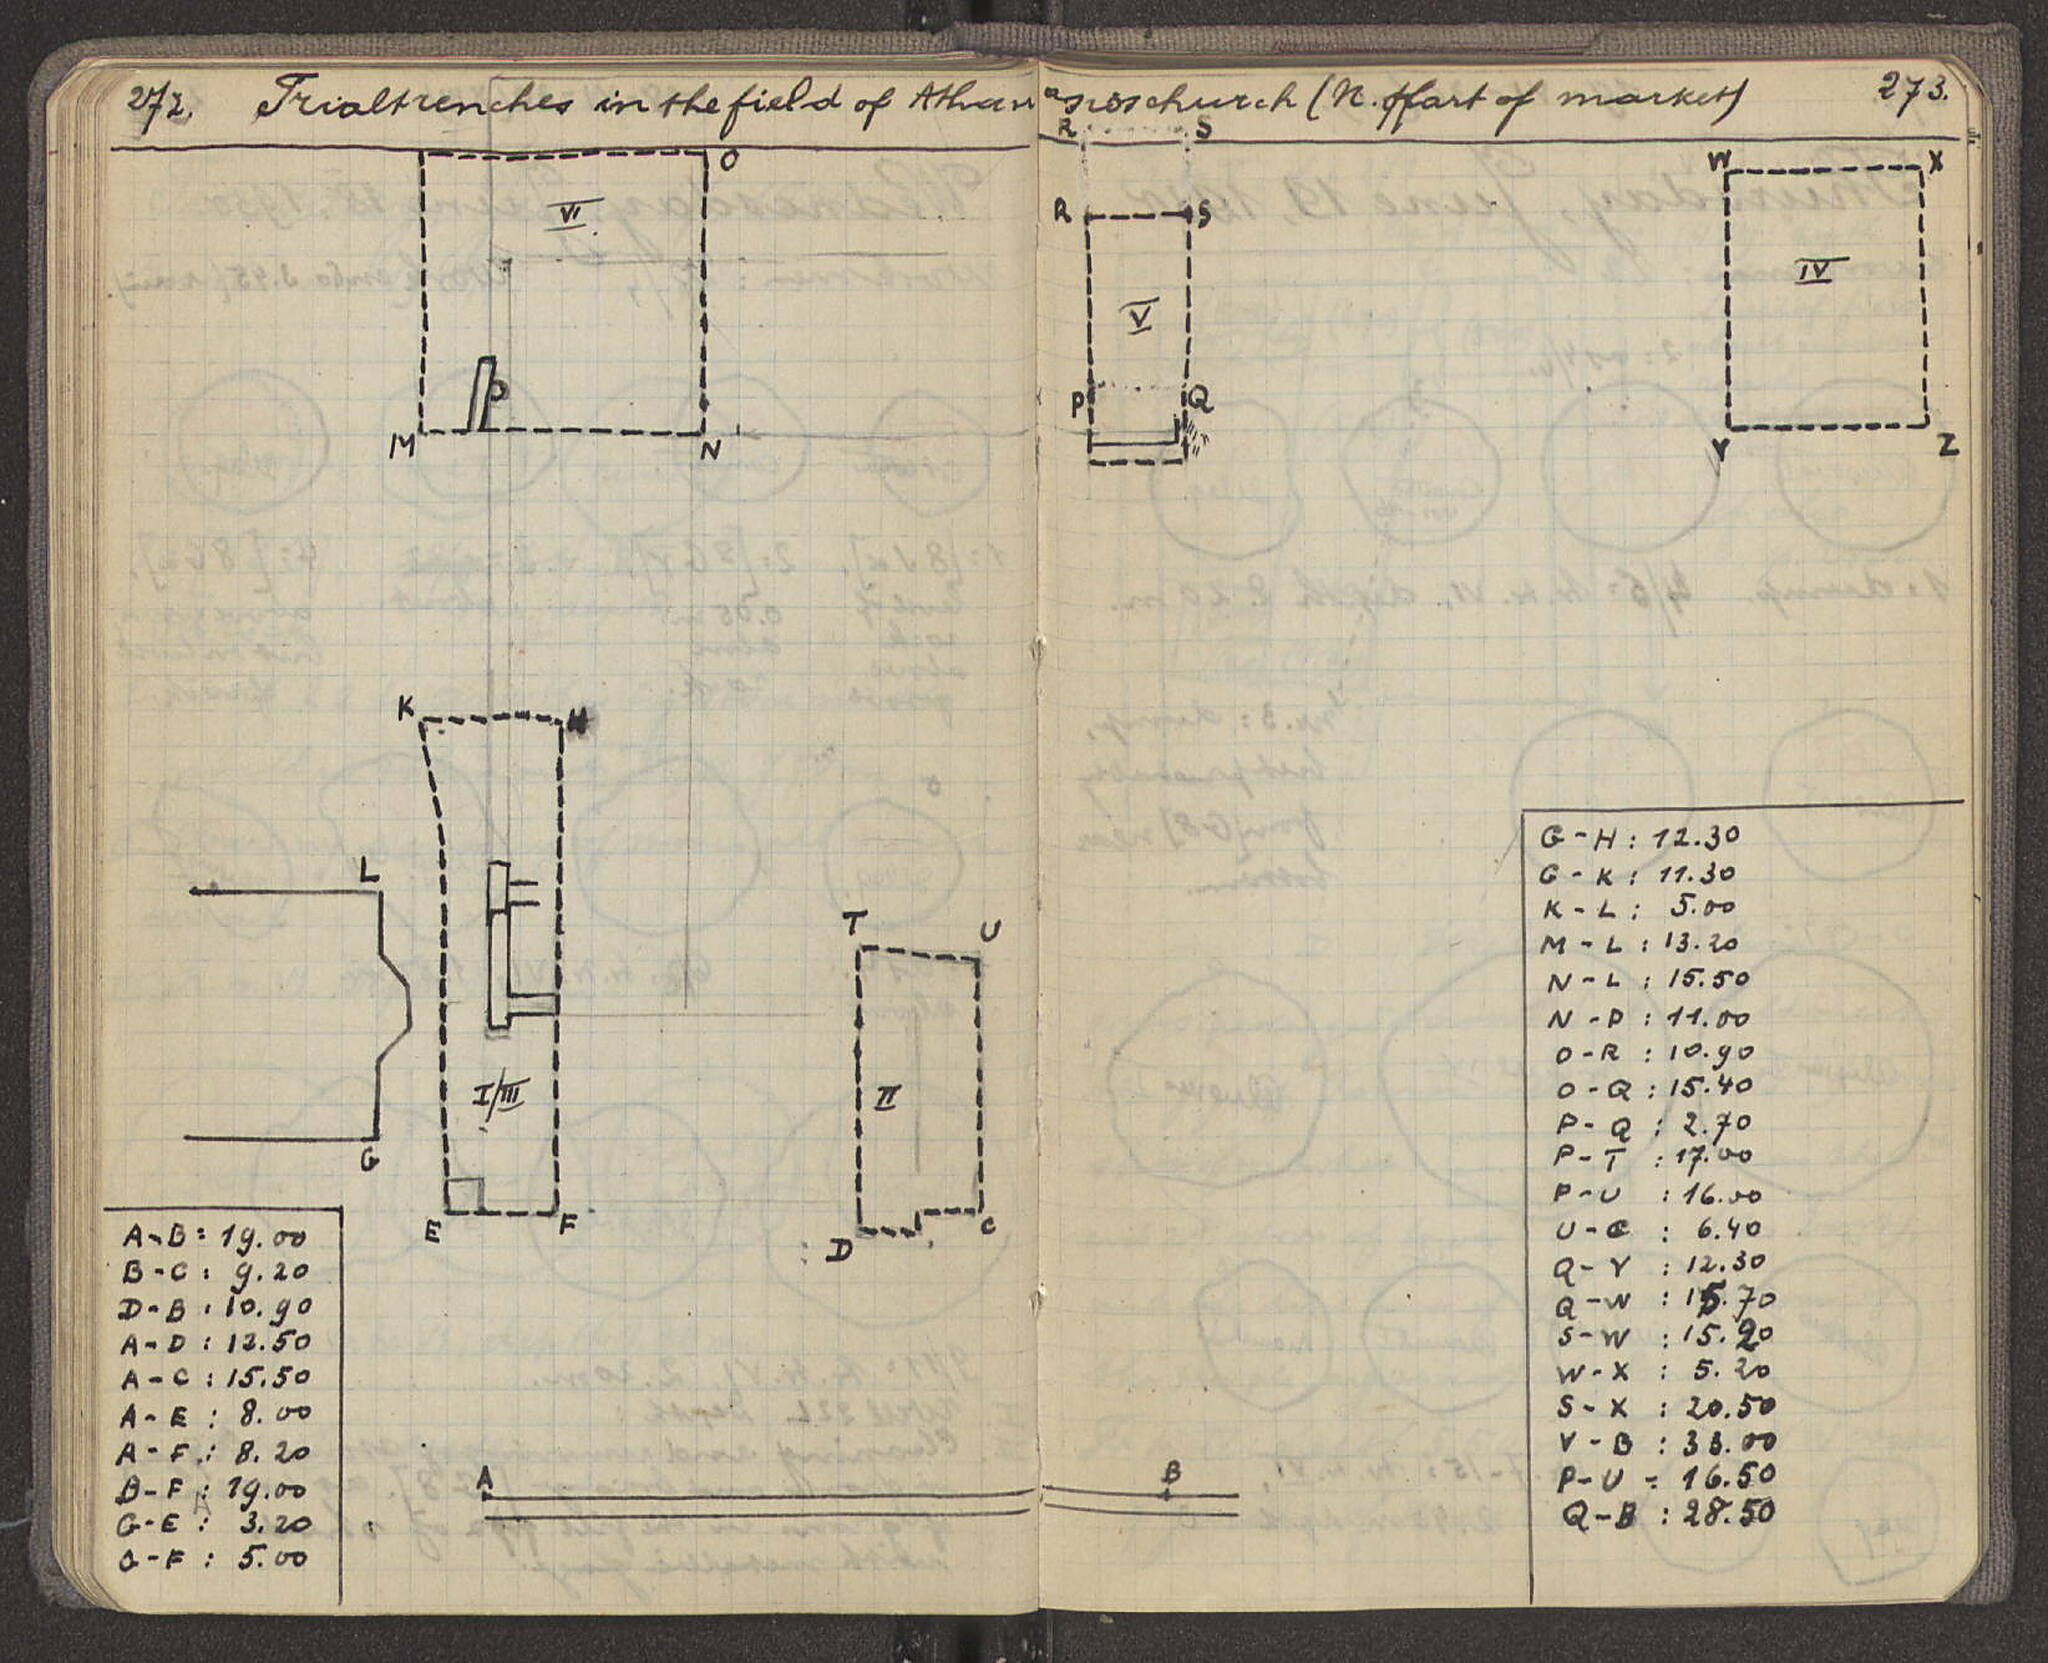 272. Trialtrenches in the field of Athanasioschurch (N. part of market) 273.
O
VI
M
N
K
H
L
G
I/III
E
F
T
U
II
D
C
A
B
A-B: 19.00
B-C: 9.20
D-B: 10.90
A-D: 12.50
A-C: 15.50
A-E: 8.00
A-F: 8.20
B-F: 19.00
G-E: 3.20
G-F: 5.00
R
S
R
S
V
P
Q
W
X
IV
Y
Z
G-H: 12.30
G-K: 11.30
K-L: 5.00
M-L: 13.20
N-L: 15.50
N-P: 11.00
O-R: 10.90
O-Q: 15.40
P-Q: 2.70
P-T: 17.00
P-U: 16.00
U-C: 6.40
Q-Y: 12.30
Q-W: 15.70
S-W: 15.20
W-X: 5.20
S-X: 20.50
Y-B: 33.00
P-U - 16.50
Q-B: 28.50